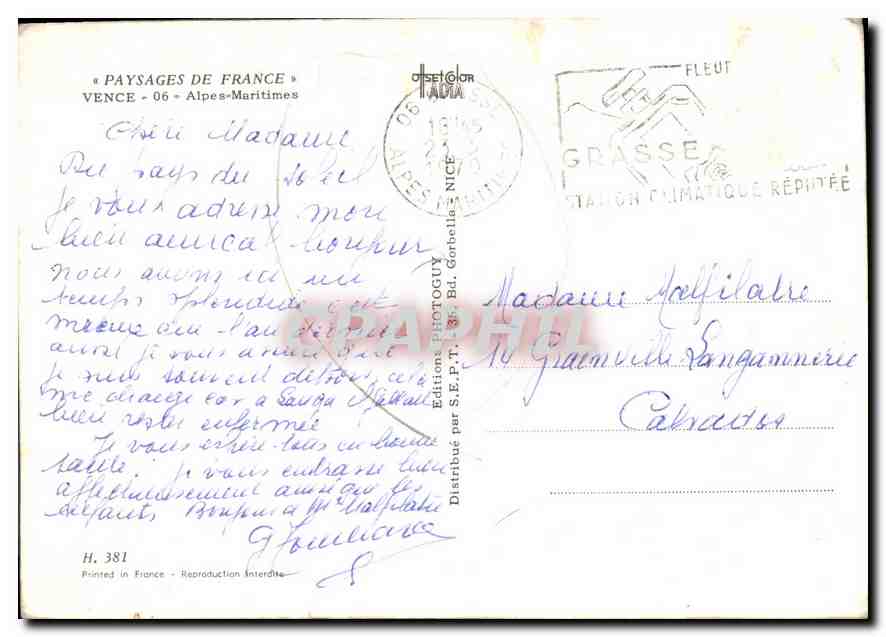 « PAYSAGES DE FRANCE »
VENCE - 06 - Alpes-Maritimes
Chère Madame
Du pays du soleil
Je vous adresse mon
bien amical bonjour
nous avons ici un
temps splendide c'est
mieux que l'an dernier
aussi je vous assure que
je suis souvent dehors cela
me change car a fallait
bien rester enfermée
Je vous espère tous en bonne
santé. Je vous embrasse bien
affectueusement ainsi que les
enfants Bonjour a Mr Malfilatre
H. 381
Printed in France - Reproduction Interdite
OFFSET COLOR
IADIA
Editions PHOTOGUY
Distribué par S.E.P.T. - 35, Bd. Gorbella - NICE
06 GRASSE
18H45
ALPES MARITIMES
FLEUR
GRASSE
STATION CLIMATIQUE RÉPUTÉE
CPAPHIL
Madame Malfilatre
14 Grainville Langannerie
Calvados